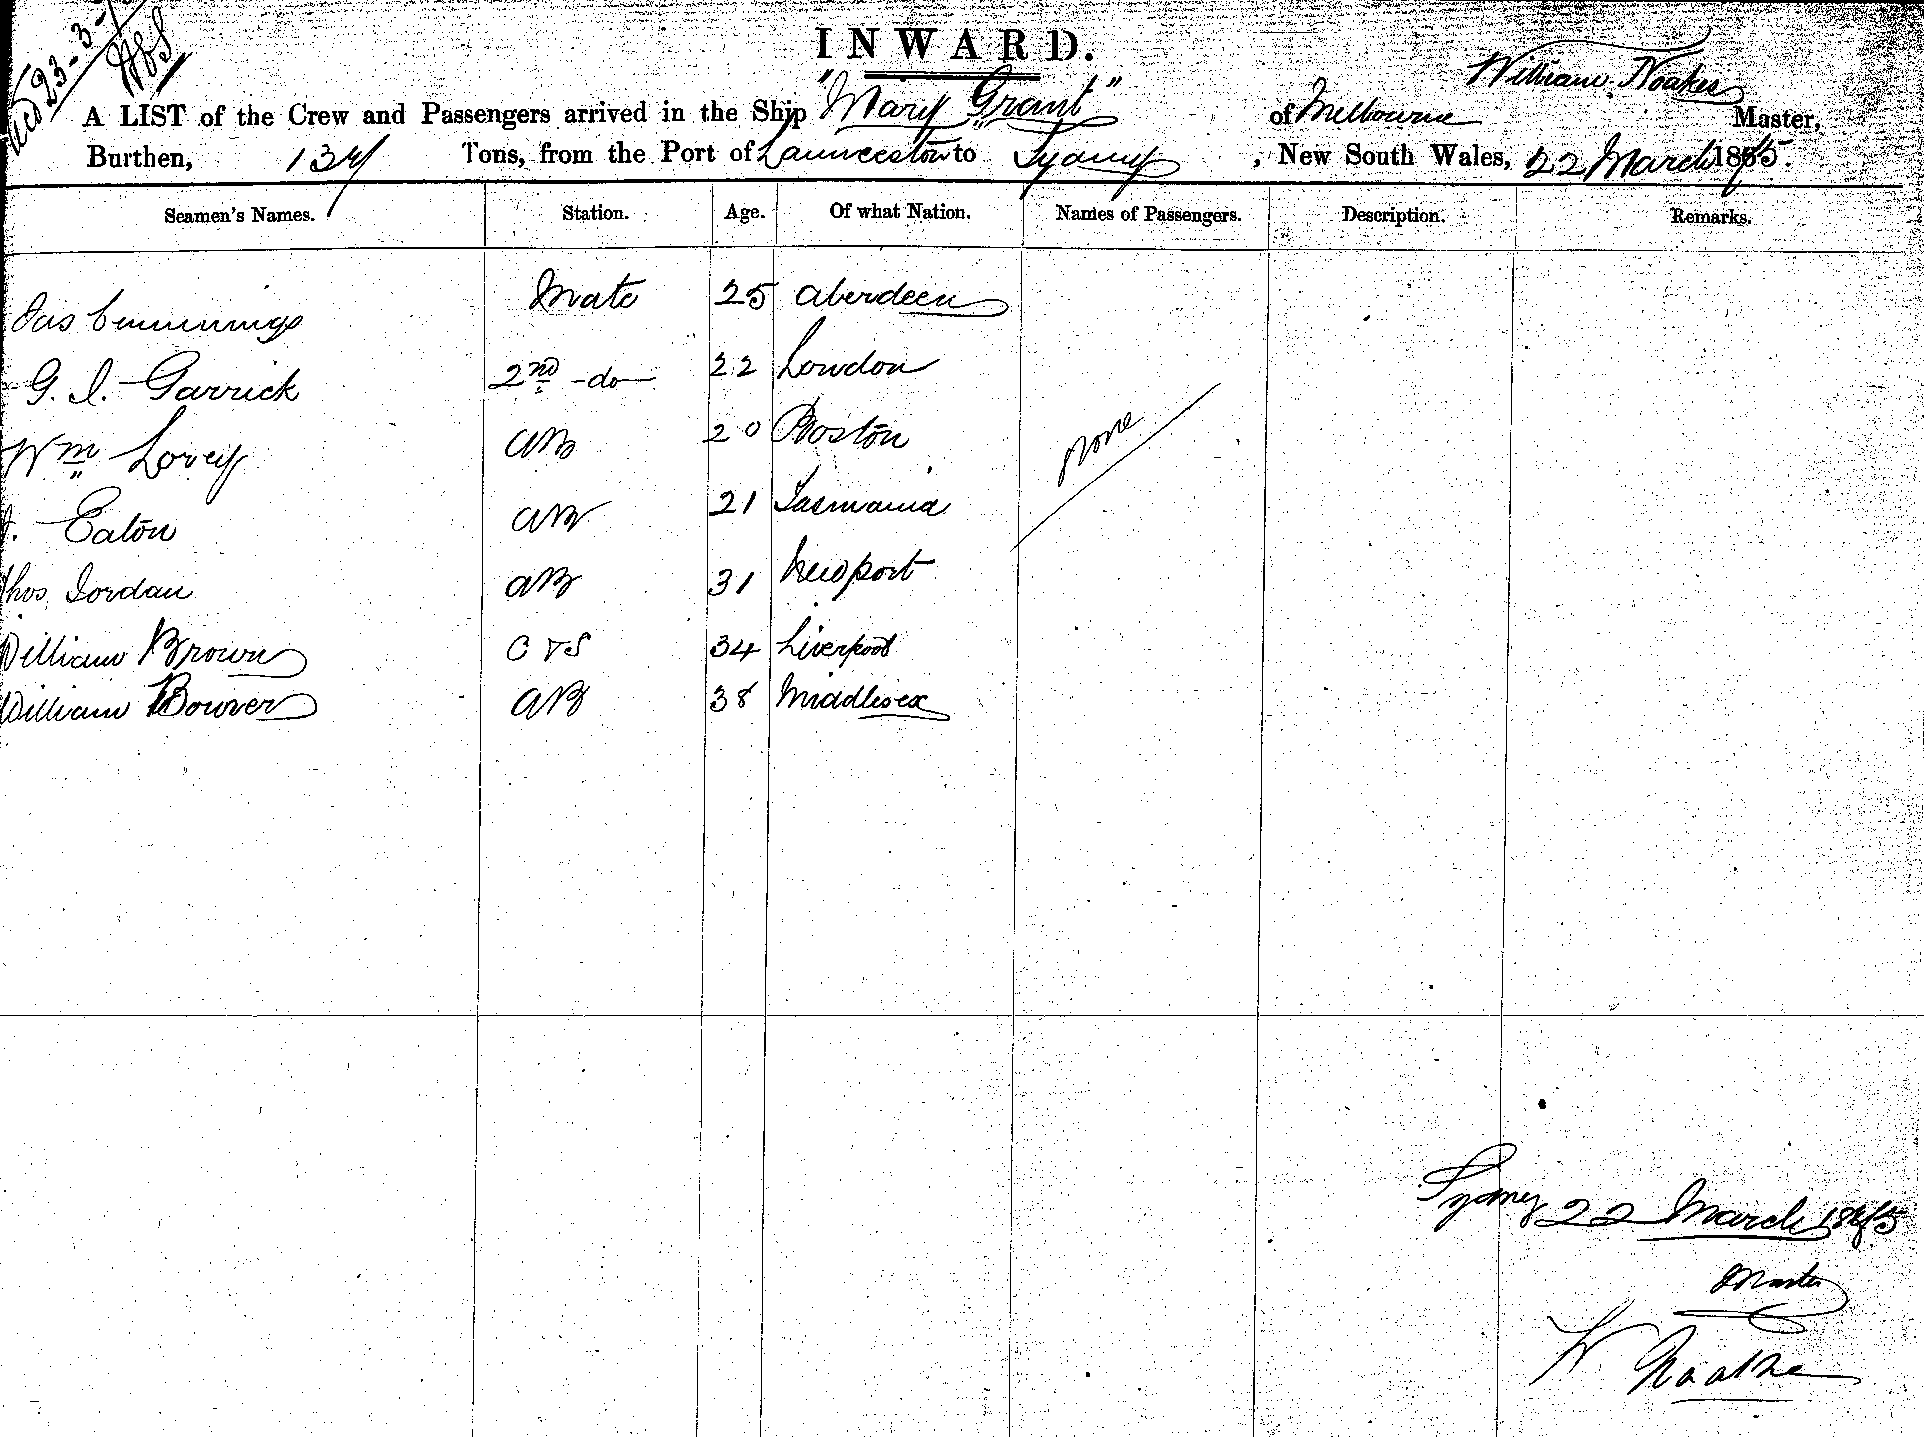 INWARD.
23-3-
William Noakes
A LIST of the Crew and Passengers arrived in the Ship "Mary Grant" of Melbourne Master,
Burthen, Tons, from the Port of Launceston to Sydney, New South Wales, 22 March
Seamen's Names. Station. Age. Of what Nation. Names of Passengers. Description. Remarks.
Jas Cummings Mate 25 Aberdeen
G. I. Garrick 2nd -do- 22 London
Wm Lovey AB 20 Boston
Eaton AB 21 Tasmania
none
Thos Jordan AB 31 Newport
William Brown C & S 34 Liverpool
William Bowver AB 38 Middlesex
Sydney 22 March
Master
W. Noakes